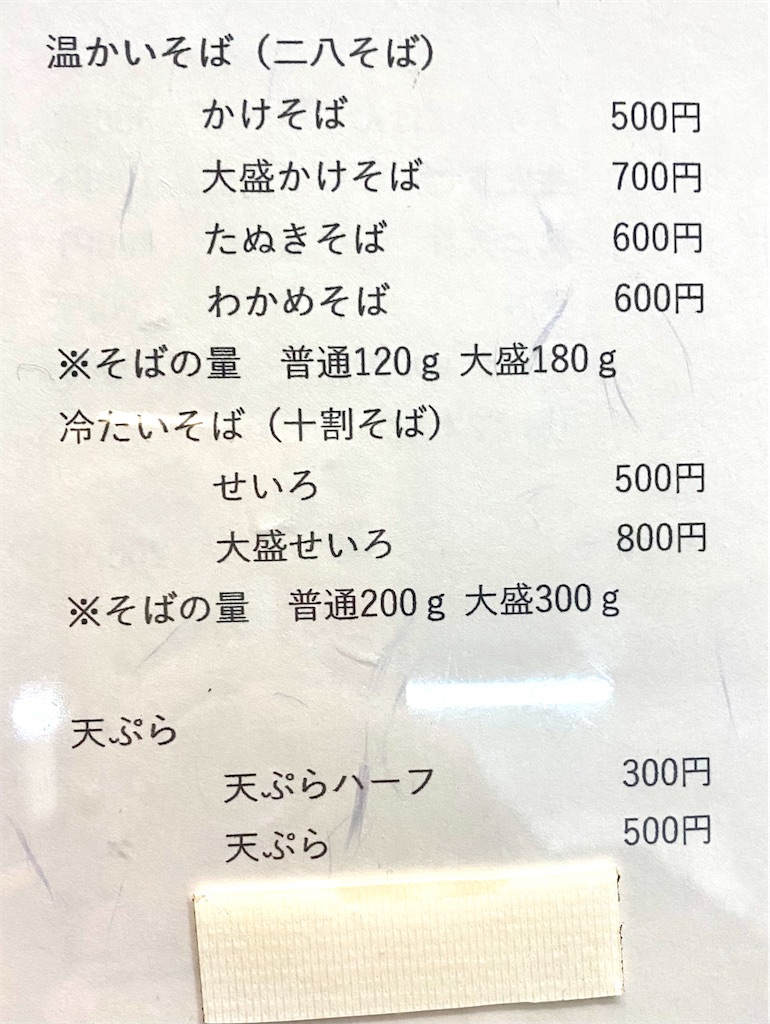 温かいそば（二八そば）
かけそば 500円
大盛かけそば 700円
たぬきそば 600円
わかめそば 600円
※そばの量 普通120ｇ 大盛180ｇ
冷たいそば（十割そば）
せいろ 500円
大盛せいろ 800円
※そばの量 普通200ｇ 大盛300ｇ
天ぷら
天ぷらハーフ 300円
天ぷら 500円